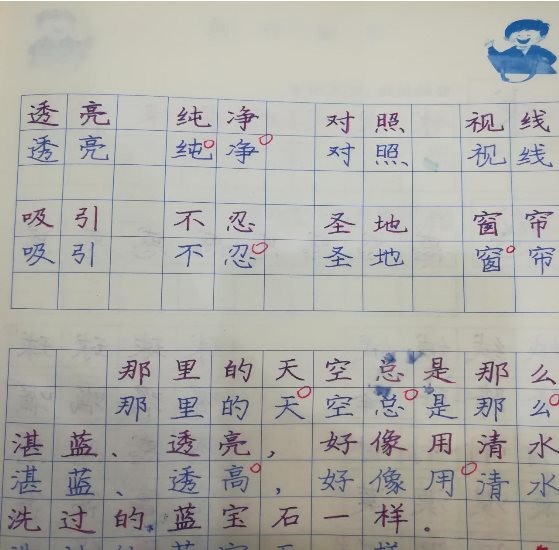 透亮 纯净 对照 视线
透亮 纯净 对照 视线
吸引 不忍 圣地 窗帘
吸引 不忍 圣地 窗帘
那里的天空总是那么
那里的天空总是那么
湛蓝、透亮，好像用清水
湛蓝、透高，好像用清水
洗过的蓝宝石一样．